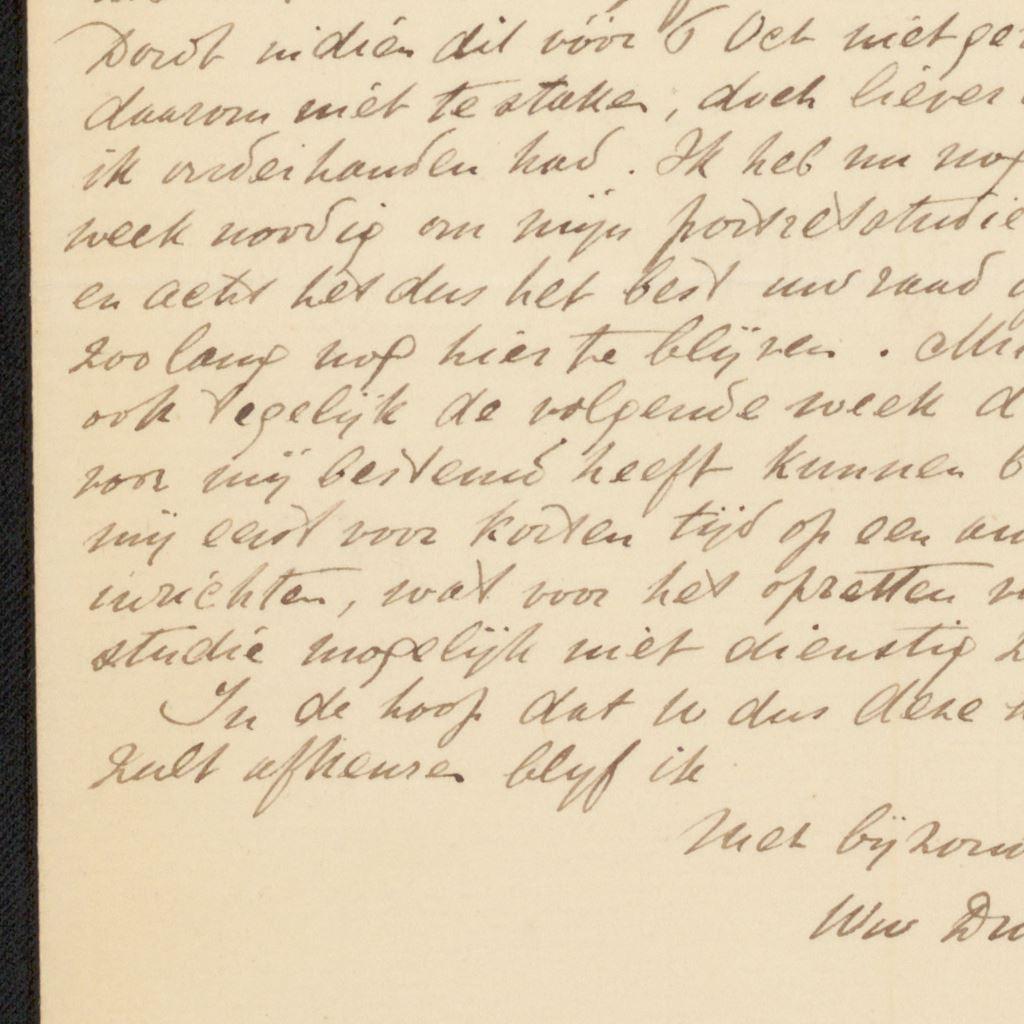 Dordt indien dit vóór 6 Oct niet
daarom niet te staken, doch liever
ik onderhanden had. Ik heb nu nog
week noodig om mijn portretstudie
en acht het dus het best uw raad
zoolang nog hier te blijven.
ook tegelijk de volgende week
voor mij bestemd heeft kunnen
mij eerst voor korten tijd op een
inrichten, wat voor het opzetten
studie mogelijk niet dienstig
In de hoop dat U dus deze
zult afkeuren blijf ik
Met bijzon
Uw